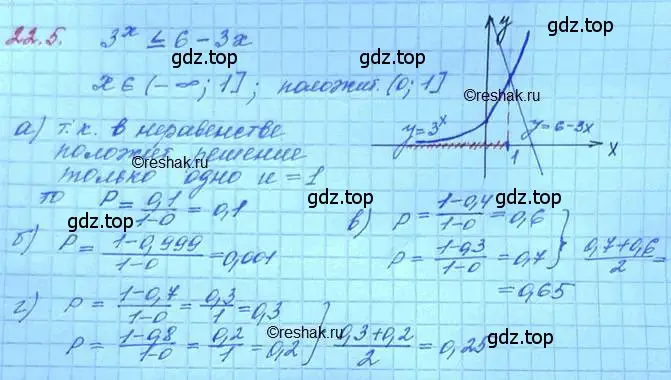 22.5. 3ˣ ≤ 6 - 3x
gdz.top
gdz.top
x ∈ (-∞; 1]; положит. (0; 1]
y
©reshak.ru
а) т.к. в неравенстве
y=3ˣ
y=6-3x
положит решение
1
x
©reshak.ru
только одно и = 1
gdz.top
gdz.top
то P = 0,1/1-0 = 0,1
в) P = 1-0,4/1-0 = 0,6
б) P = 1-0,999/1-0 = 0,001
P = 1-0,3/1-0 = 0,7 } 0,7+0,6/2 =
= 0,65
г) P = 1-0,7/1-0 = 0,3/1 = 0,3
©reshak.ru
gdz.top
gdz.top
P = 1-0,8/1-0 = 0,2/1 = 0,2 } 0,3+0,2/2 = 0,25